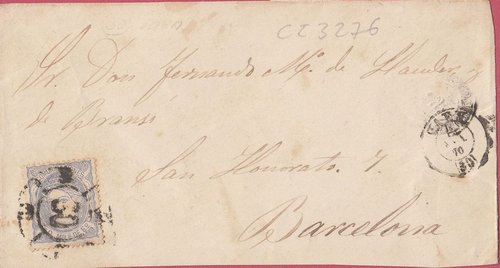 CZ3276
Sr. Don Fernando Mª. de Llauder y
de Bransí
San Honorato. 7.
Barcelona
70